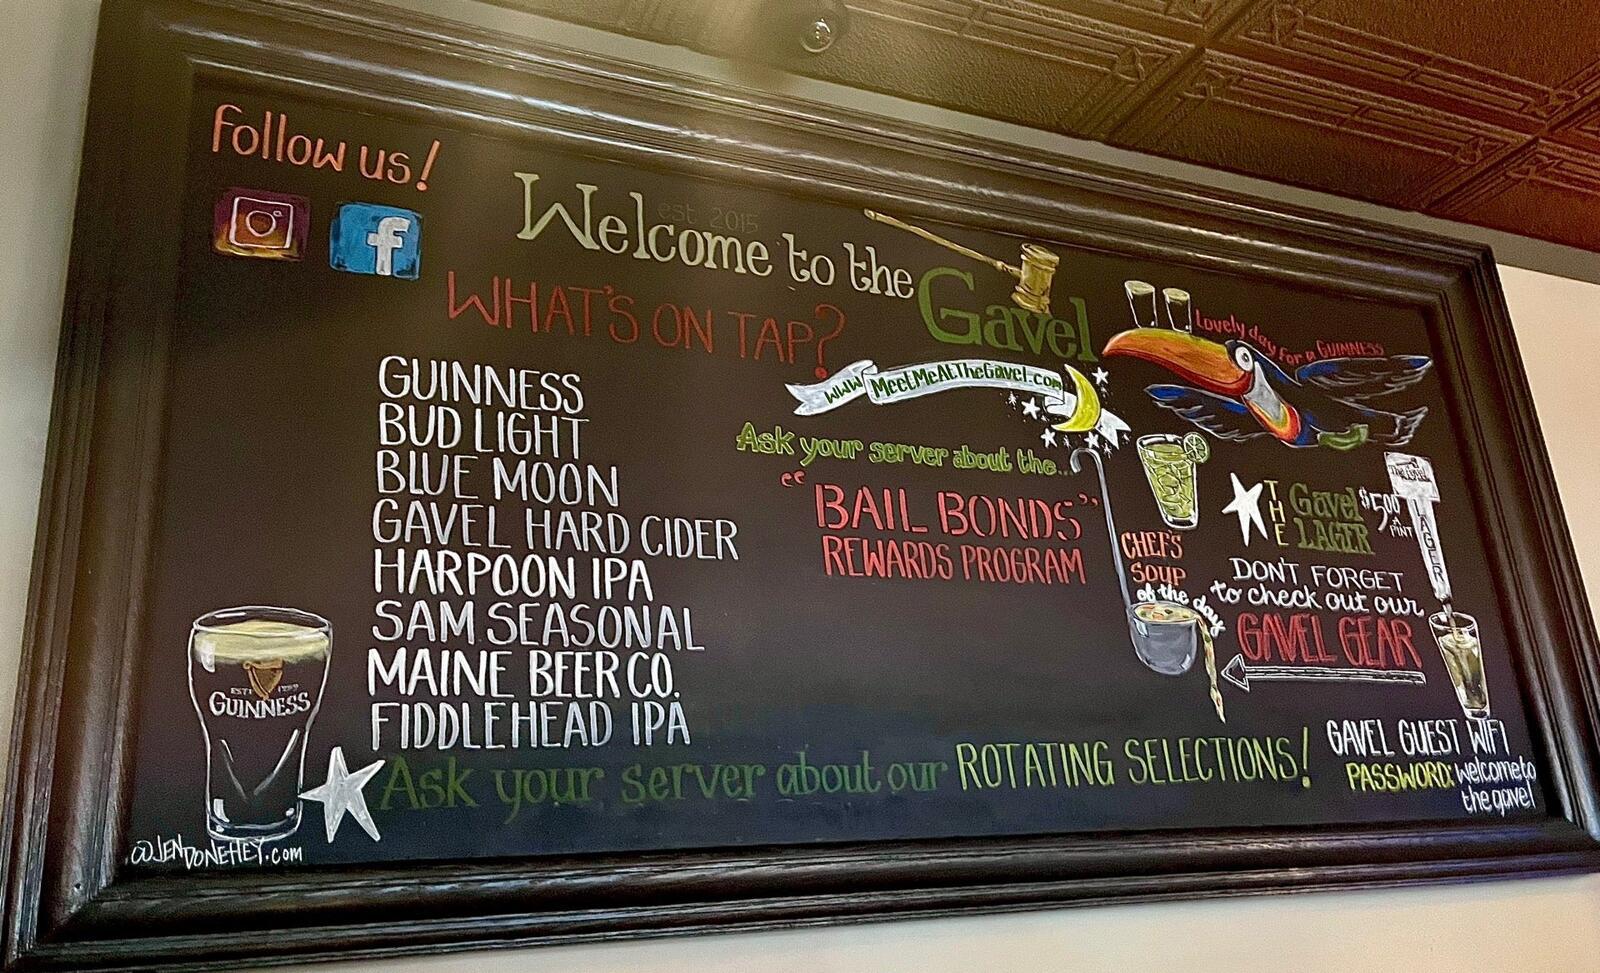 follow us!
est. 2015
Welcome to the
Gavel
WHAT'S ON TAP?
GUINNESS
BUD LIGHT
BLUE MOON
GAVEL HARD CIDER
HARPOON IPA
SAM SEASONAL
MAINE BEER CO.
FIDDLEHEAD IPA
www.MeetMeAtTheGavel.com
Ask your server about the...
"BAIL BONDS"
REWARDS PROGRAM
Lovely day for a GUINNESS
CHEF'S
SOUP
of the day
THE
Gavel
LAGER
$5.00
A
PINT
The Gavel
LAGER
DON'T FORGET
to check out our
GAVEL GEAR
ESTD 1759
GUINNESS
Ask your server about our ROTATING SELECTIONS!
GAVEL GUEST WIFI
PASSWORD: welcometo
the gavel
@JENDONEHEY.com